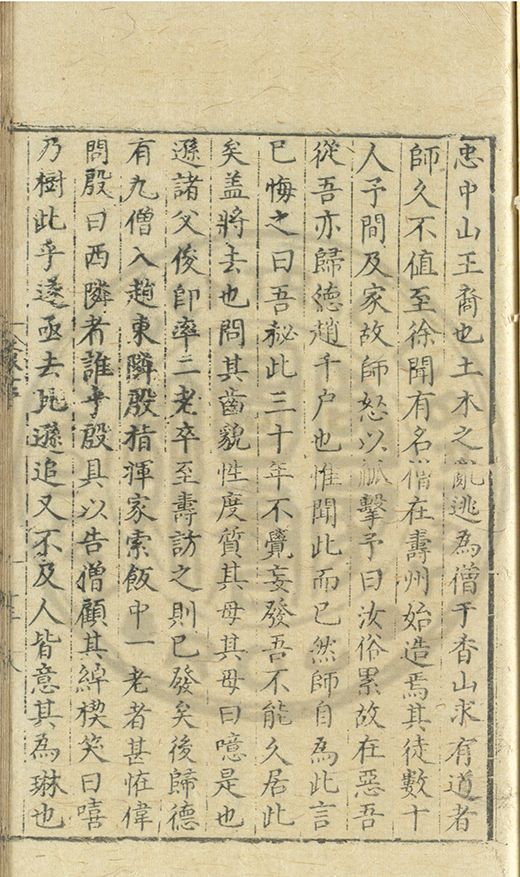 忠中山王裔也土木之亂逃為僧于香山求有道者
師久不值至徐聞有名僧在壽州始造焉其徒數十
人予間及家故師怒以㼽擊予曰汝俗累故在惡吾
從吾亦歸德趙千户也惟聞此而已然師自為此言
已悔之曰吾秘此三十年不覺妄發吾不能久居此
矣盖將去也問其齒貌性度質其母其母曰噫是也
遜諸父俊即率二老卒至壽訪之則已發矣後歸德
有九僧入趙東隣殷指揮家索飯中一老者甚恠偉
問殷曰西隣者誰乎殷具以告僧顧其綽楔笑曰嘻
乃樹此乎遂亟去比遜追又不及人皆意其為琳也